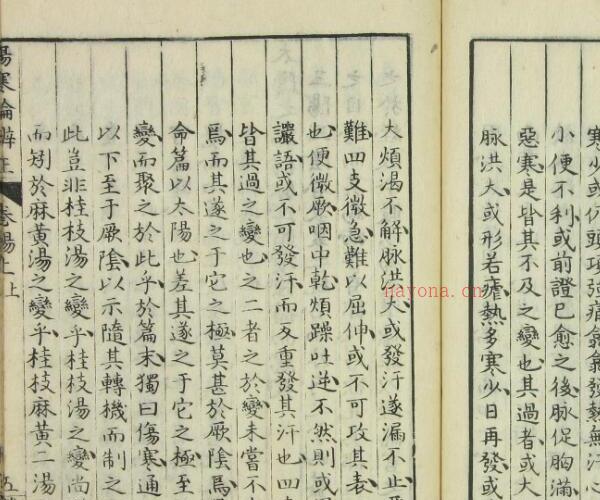 寒少或仍頭項強痛翕翕發熱無汗心
小便不利或前證已愈之後脉促胸滿
惡寒是皆其不及之變也其過者或大
脉洪大或形若瘧熱多寒少日再發或
大煩渴不解脉洪大或發汗遂漏不止
難四支微急難以屈伸或不可攻其表
也便微厥咽中乾煩躁吐逆不然則或
讝語或不可發汗而反重發其汗也四
皆其過之變也之二者之於變未嘗不
焉而其遂之于它之極莫甚於厥陰焉
命篇以太陽也差其遂之于它之極至
變而聚之於此乎於篇末獨曰傷寒通
以下至于厥陰以示隨其轉機而制之
此豈非桂枝湯之變乎桂枝湯之變尚
而矧於麻黃湯之變乎桂枝麻黃二湯
傷寒論辨正 卷陽上上
nayona.cn